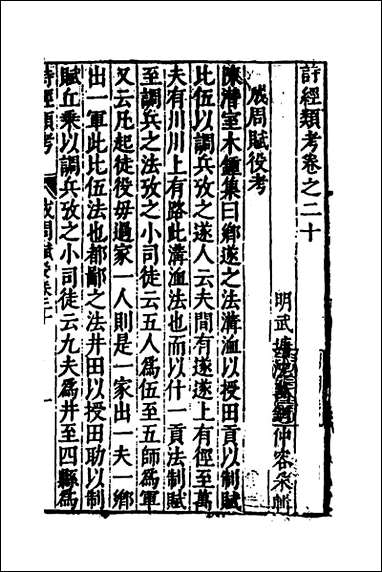 詩經類考卷之二十
明武塘沈萬鈳仲容采輯
成周賦役考
陳潛室木鍾集曰鄉遂之法溝洫以授田貢以制賦
比伍以調兵攷之遂人云夫間有遂遂上有徑至萬
夫有川川上有路此溝洫法也而以什一貢法制賦
至調兵之法攷之小司徒云五人為伍至五師為軍
又云凡起徒役毋過家一人則是一家出一夫一鄉
出一軍此比伍法也都鄙之法井田以授田助以制
賦丘乘以調兵攷之小司徒云九夫為井至四縣為
詩經類考
成周賦役卷二十
一